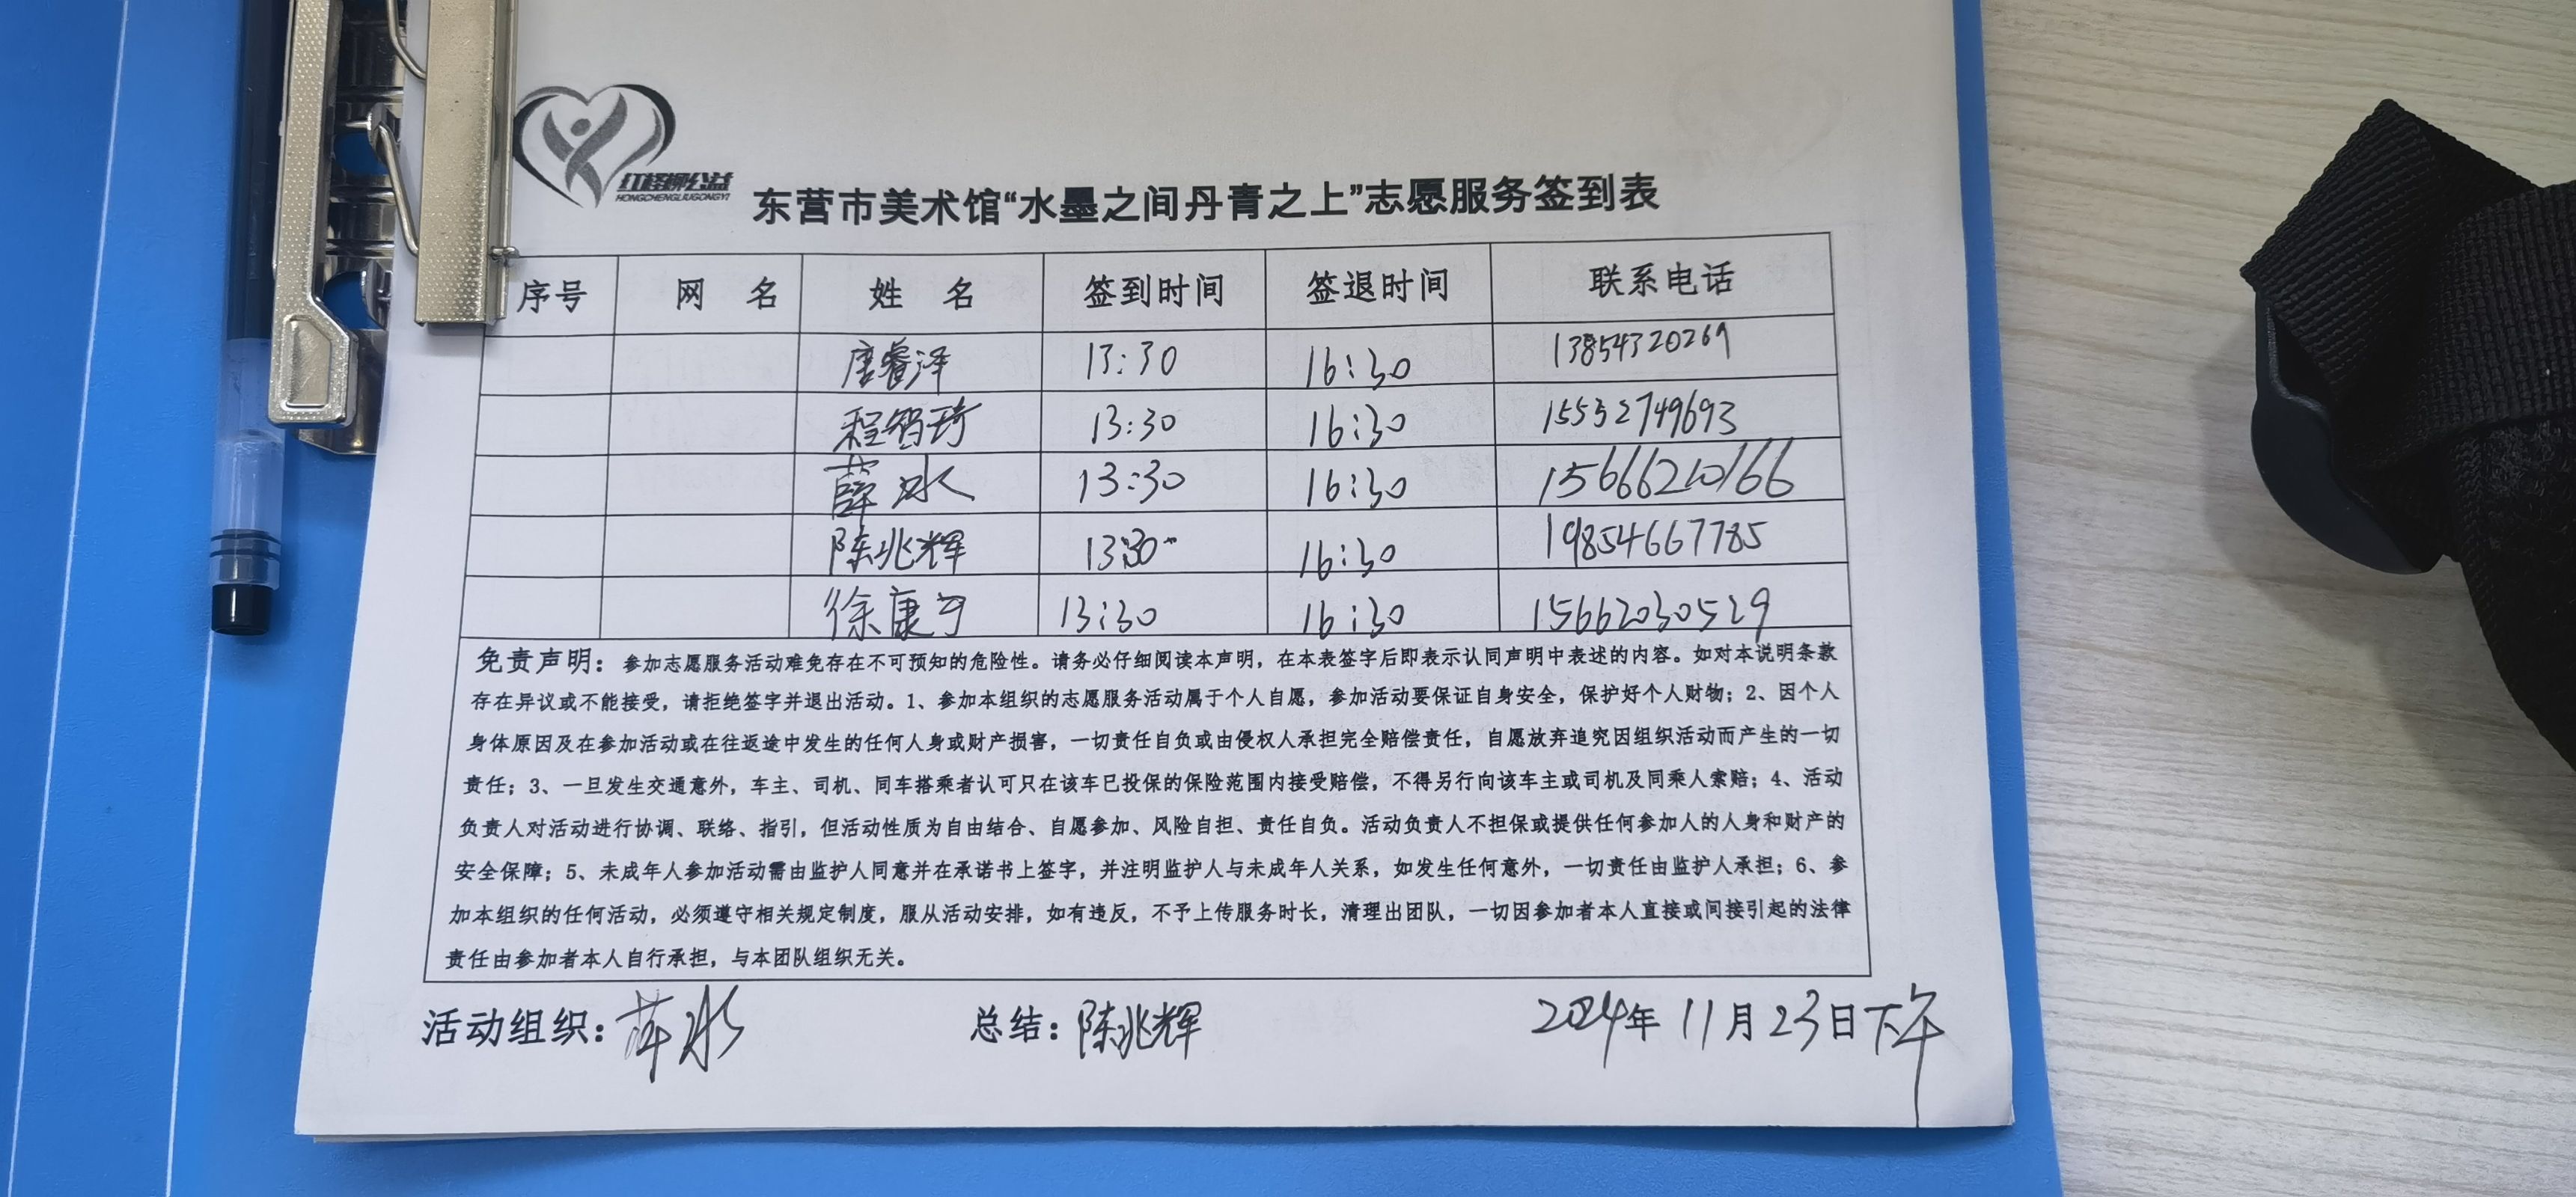 红柽柳公益
HONGCHENGLIUGONGYI
东营市美术馆“水墨之间丹青之上”志愿服务签到表
序号 网 名 姓 名 签到时间 签退时间 联系电话
唐睿泽 13:30 16:30 13854320269
程智琦 13:30 16:30 15532749693
薛冰 13:30 16:30 15666210166
陈兆辉 13:30 16:30 19854667785
徐康宁 13:30 16:30 15662030529
免责声明：参加志愿服务活动难免存在不可预知的危险性。请务必仔细阅读本声明，在本表签字后即表示认同声明中表述的内容。如对本说明条款
存在异议或不能接受，请拒绝签字并退出活动。1、参加本组织的志愿服务活动属于个人自愿，参加活动要保证自身安全，保护好个人财物；2、因个人
身体原因及在参加活动或在往返途中发生的任何人身或财产损害，一切责任自负或由侵权人承担完全赔偿责任，自愿放弃追究因组织活动而产生的一切
责任；3、一旦发生交通意外，车主、司机、同车搭乘者认可只在该车已投保的保险范围内接受赔偿，不得另行向该车主或司机及同乘人索赔；4、活动
负责人对活动进行协调、联络、指引，但活动性质为自由结合、自愿参加、风险自担、责任自负。活动负责人不担保或提供任何参加人的人身和财产的
安全保障；5、未成年人参加活动需由监护人同意并在承诺书上签字，并注明监护人与未成年人关系，如发生任何意外，一切责任由监护人承担；6、参
加本组织的任何活动，必须遵守相关规定制度，服从活动安排，如有违反，不予上传服务时长，清理出团队，一切因参加者本人直接或间接引起的法律
责任由参加者本人自行承担，与本团队组织无关。
活动组织：薛冰 总结：陈兆辉 2024年 11月23日下午